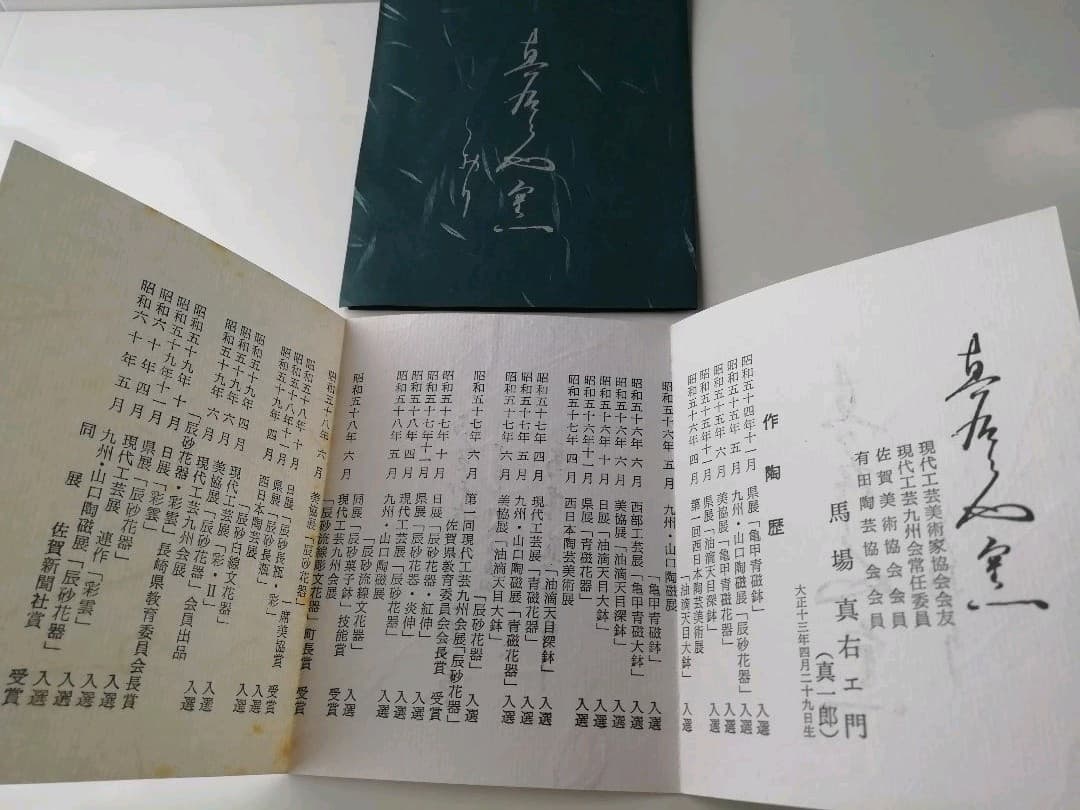 真右ェ門窯
しおり
真右ェ門窯
現代工芸美術家協会会友
現代工芸九州会常任委員
佐賀美術協会会員
有田陶芸協会会員
馬場真右ェ門
(真一郎)
大正十三年四月二十九日生
作陶歴
昭和五十四年十一月 県展「亀甲青磁鉢」 入選
昭和五十五年五月 九州・山口陶磁展「辰砂花器」 入選
昭和五十五年六月 美協展「亀甲青磁鉢」 入選
昭和五十五年十一月 県展「油滴天目深鉢」 入選
第一回西日本陶芸美術展
「油滴天目大鉢」 入選
昭和五十六年五月 九州・山口陶磁展
「亀甲青磁鉢」 入選
昭和五十六年六月 西部工芸展「亀甲青磁大鉢」 入選
昭和五十六年六月 美協展「油滴天目深鉢」 入選
昭和五十六年十月 日展「油滴天目深鉢」 入選
昭和五十六年十一月 県展「青磁花器」 入選
昭和五十七年四月 西日本陶芸美術展
「油滴天目深鉢」 入選
昭和五十七年四月 現代工芸展「青磁花器」 入選
昭和五十七年五月 九州・山口陶磁展「青磁花器」 入選
昭和五十七年六月 美協展「油滴天目大鉢」 入選
第一回現代工芸九州会展「辰砂花器」
佐賀県教育委員会会長賞 受賞
昭和五十七年十月 日展「辰砂花器・紅伸」 入選
昭和五十七年十一月 県展「辰砂花器」 入選
昭和五十八年 現代工芸展「辰砂花器・炎伸」 入選
昭和五十八年五月 九州・山口陶磁展
「辰砂流線文花器」 入選
昭和五十八年六月 同展「辰砂菓子鉢」技能賞 受賞
現代工芸九州会展
「辰砂流線彫文花器」町長賞 受賞
美協展「辰砂花器」
昭和五十八年十月 日展「辰砂長瓶・彩」 入選
昭和五十八年十一月 県展「辰砂長瓶」一席美協賞 受賞
昭和五十九年四月 西日本陶芸展
「辰砂臼線文花器」 入選
昭和五十九年四月 現代工芸展「彩・Ⅱ」 入選
昭和五十九年六月 美協展「辰砂花器」会員出品
昭和五十九年六月 現代工芸九州会展
「辰砂花器」 入選
昭和五十九年十月 日展「辰砂花器・彩雲」 入選
昭和五十九年十一月 県展「彩雲」長崎県教育委員会長賞
昭和六十年四月 現代工芸展 連作「彩雲」 入選
昭和六十年五月 九州・山口陶磁展「辰砂花器」 入選
同展 佐賀新聞社賞 受賞